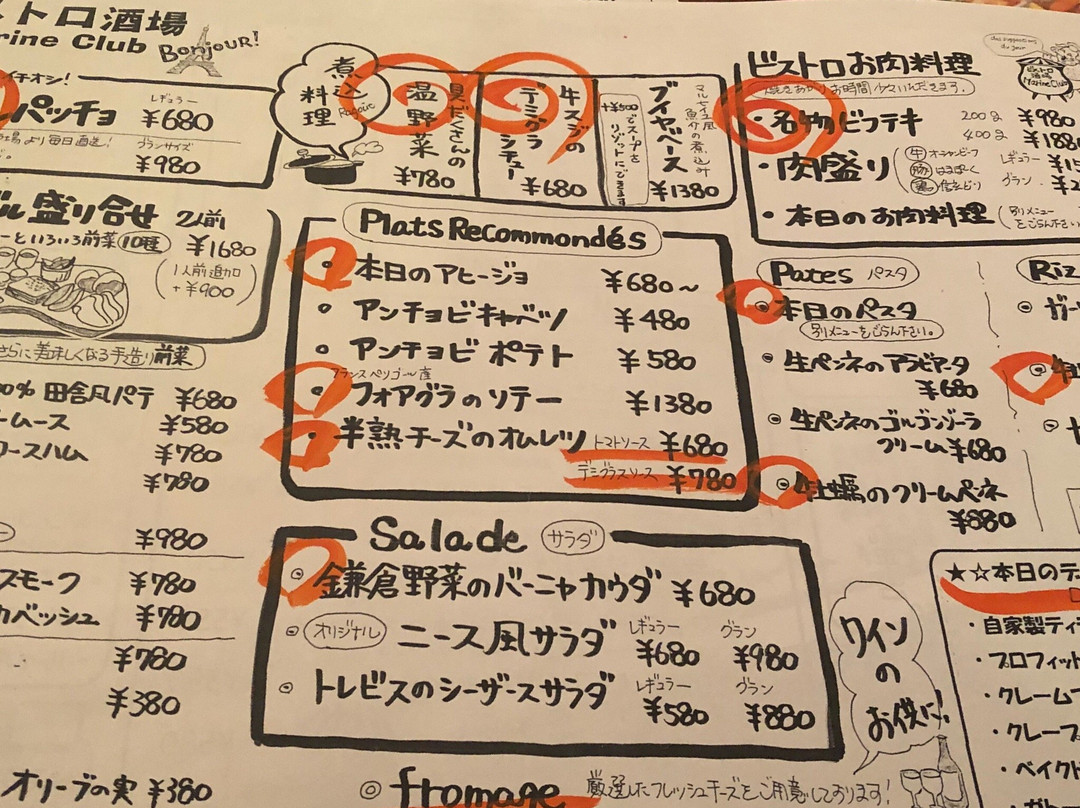 トロ酒場
rine Club Bonjour!
イチオシ!
パッチョ レギュラー ¥680
より毎日直送!
グランサイズ ¥980
盛り合せ 2人前
といろいろ前菜10種 ¥1680
1人前追加
+¥900
さらに美味しくなる手造り前菜
00% 田舎風パテ ¥680
ームース ¥580
ロースハム ¥780
¥780
¥980
スモーク ¥780
カベッシュ ¥780
¥780
¥380
オリーブの実 ¥380
煮込料理
Ragout
具だくさんの
温野菜
¥780
牛スジの
デミグラシチュー
¥680
マルセイユ風
魚介の煮込み
ブイヤベース
+¥500でスープを
リゾットにできます
¥1380
Plats Recommondés
本日のアヒージョ ¥680~
アンチョビキャベツ ¥480
アンチョビ ポテト ¥580
フランスペリゴール産
フォアグラのソテー ¥1380
半熟チーズのオムレツ トマトソース ¥680
デミグラスソース ¥780
Salade サラダ
鎌倉野菜のバーニャカウダ ¥680
オリジナル ニース風サラダ レギュラー ¥680 グラン ¥980
トレビスのシーザースサラダ レギュラー ¥580 グラン ¥880
fromage 厳選したフレッシュチーズをご用意しております!
ビストロお肉料理
焼きあがりお時間少々いただきます。
・名物ビフテキ 200g ¥980
400g ¥188
・肉盛り 牛 オージービーフ レギュラー
グラン
・本日のお肉料理 (別メニューをごらん下さい
Marine Club
Pates パスタ
本日のパスタ
別メニューをごらん下さい。
生ペンネのアラビアータ
¥680
生ペンネのゴルゴンゾーラ
クリーム ¥680
牡蠣のクリームペンネ
¥880
Riz
ガー
ワインのお供に!
★☆本日のデ
・自家製ティ
・プロフィット
・クレーム
・クレープ
・ベイク